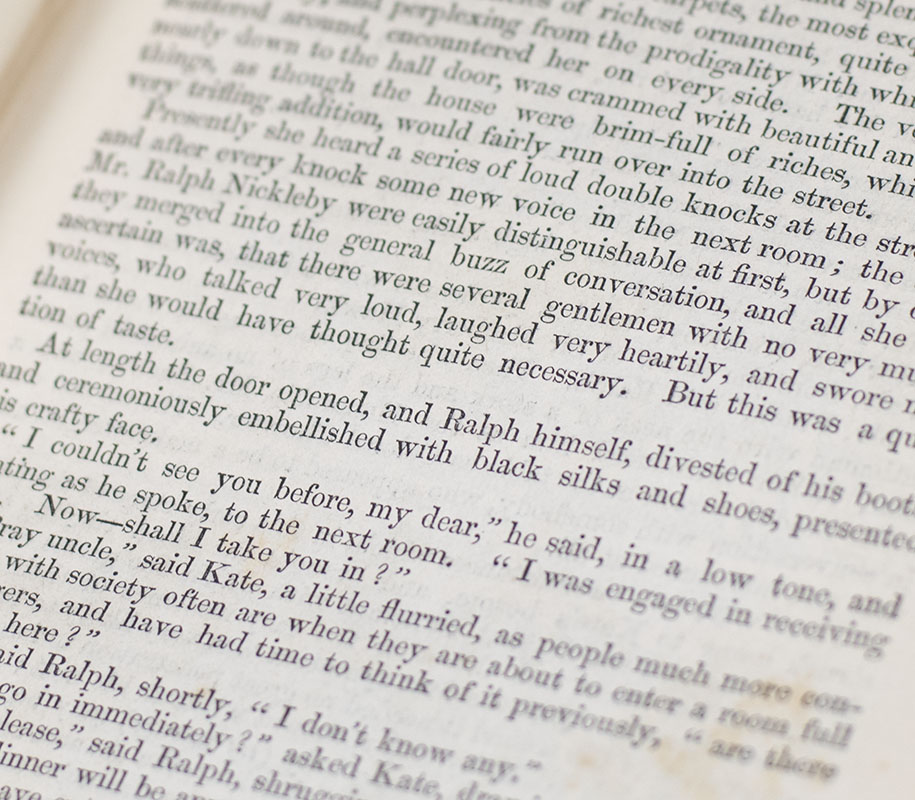 and splen
carpets, the most exq
of richest ornament, quite
and perplexing from the prodigality with whi
scattered around, encountered her on every side. The ve
nearly down to the hall door, was crammed with beautiful an
things, as though the house were brim-full of riches, whi
very trifling addition, would fairly run over into the street.
Presently she heard a series of loud double knocks at the str
and after every knock some new voice in the next room; the
Mr. Ralph Nickleby were easily distinguishable at first, but by
they merged into the general buzz of conversation, and all she
ascertain was, that there were several gentlemen with no very mu
voices, who talked very loud, laughed very heartily, and swore
than she would have thought quite necessary. But this was a qu
tion of taste.
At length the door opened, and Ralph himself, divested of his boot
and ceremoniously embellished with black silks and shoes, presented
is crafty face.
“ I couldn’t see you before, my dear,” he said, in a low tone, and
ating as he spoke, to the next room. “ I was engaged in receiving
Now—shall I take you in ? ”
ray uncle,” said Kate, a little flurried, as people much more con-
with society often are when they are about to enter a room full
ers, and have had time to think of it previously, “ are there
here ? ”
aid Ralph, shortly, “ I don’t know any.”
go in immediately ? ” asked Kate,
lease,” said Ralph, shruggi
inner will be